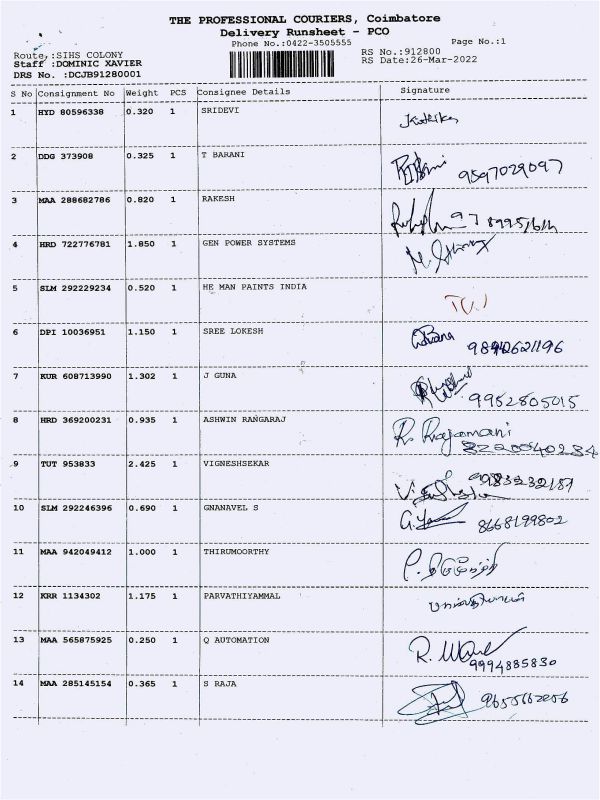 THE PROFESSIONAL COURIERS, Coimbatore
Delivery Runsheet - PCO
Phone No.:0422-3505555
Page No.:1
Route :SIHS COLONY
RS No.:912800
Staff :DOMINIC XAVIER
RS Date:26-Mar-2022
DRS No. :DCJB91280001
S No Consignment No Weight PCS Consignee Details Signature
1 HYD 80596338 0.320 1 SRIDEVI
2 DDG 373908 0.325 1 T BARANI
9597029097
3 MAA 288682786 0.820 1 RAKESH
4 HRD 722776781 1.850 1 GEN POWER SYSTEMS
5 SLM 292229234 0.520 1 HE MAN PAINTS INDIA
6 DPI 10036951 1.150 1 SREE LOKESH
7 KUR 608713990 1.302 1 J GUNA
9952805015
8 HRD 369200231 0.935 1 ASHWIN RANGARAJ
R. Rajamani
8220040234
9 TUT 953833 2.425 1 VIGNESHSEKAR
10 SLM 292246396 0.690 1 GNANAVEL S
8668199802
11 MAA 942049412 1.000 1 THIRUMOORTHY
12 KRR 1134302 1.175 1 PARVATHIYAMMAL
13 MAA 565875925 0.250 1 Q AUTOMATION
9994885830
14 MAA 285145154 0.365 1 S RAJA